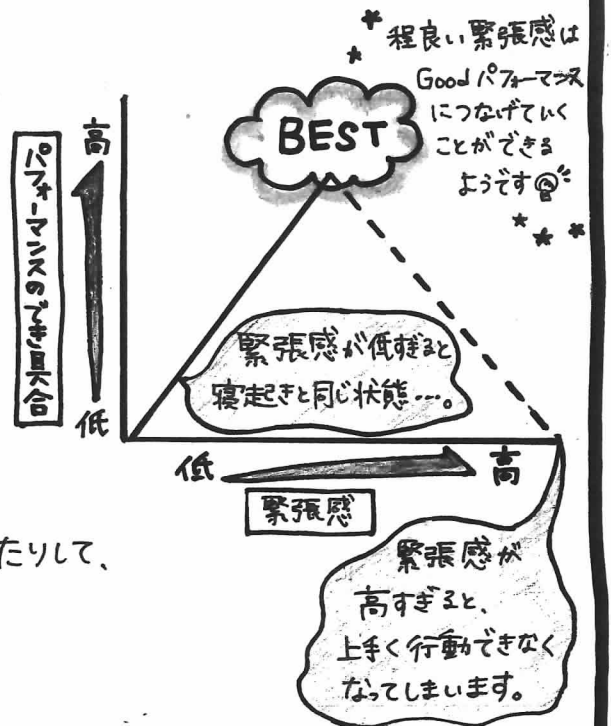 程良い緊張感は
Goodパフォーマンス
につなげていく
ことができる
ようです
BEST
高
パフォーマンスのでき具合
低
緊張感が低すぎると
寝起きと同じ状態…。
低
高
緊張感
たりして、
緊張感が
高すぎると、
上手く行動できなく
なってしまいます。